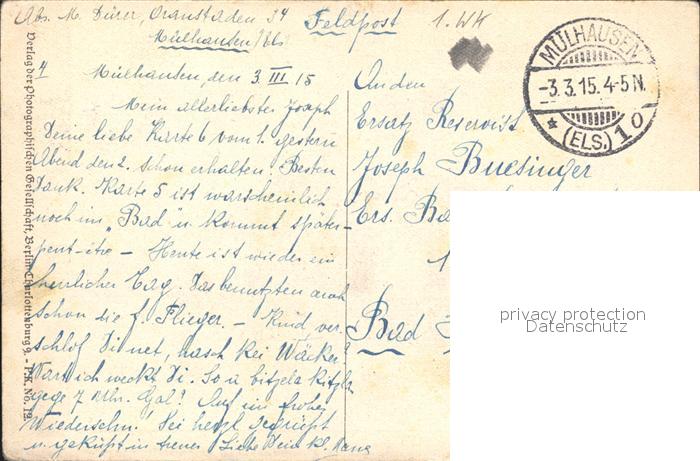 Abs. M. Dürer, Oranstaden 34
Mülhausen/Els
Feldpost
1. WK
4
Mülhausen, den 3 III 15
Mein allerliebster Joseph
Deine liebe Karte 6 vom 1. gestern
Abend den 2. schon erhalten. Besten
Dank. Karte 5 ist warscheinlich
noch im "Bad" u. kommt später
Heute ist wieder ein
herrlicher Tag. Das benutzten auch
schon die f. Flieger. – Kind ver
schlof Di net, hasch kei Wäcker?
Wart ich weckt Di. So ü bitzela
gege 7 Uhr. Gal? Auf im frohes
Wiedersehn. Sei herzl. gegrüßt
u. geküßt in treuer Liebe Dein kl.
An den
Ersatz Reservist
Joseph Buesinger
Ers. Ba
1
Bad
MÜLHAUSEN
-3.3.15.4-5 N.
* (ELS.) 1 o
Verlag der Photographischen Gesellschaft, Berlin-Charlottenburg 9. - P.K. No. 12.
privacy protection
Datenschutz